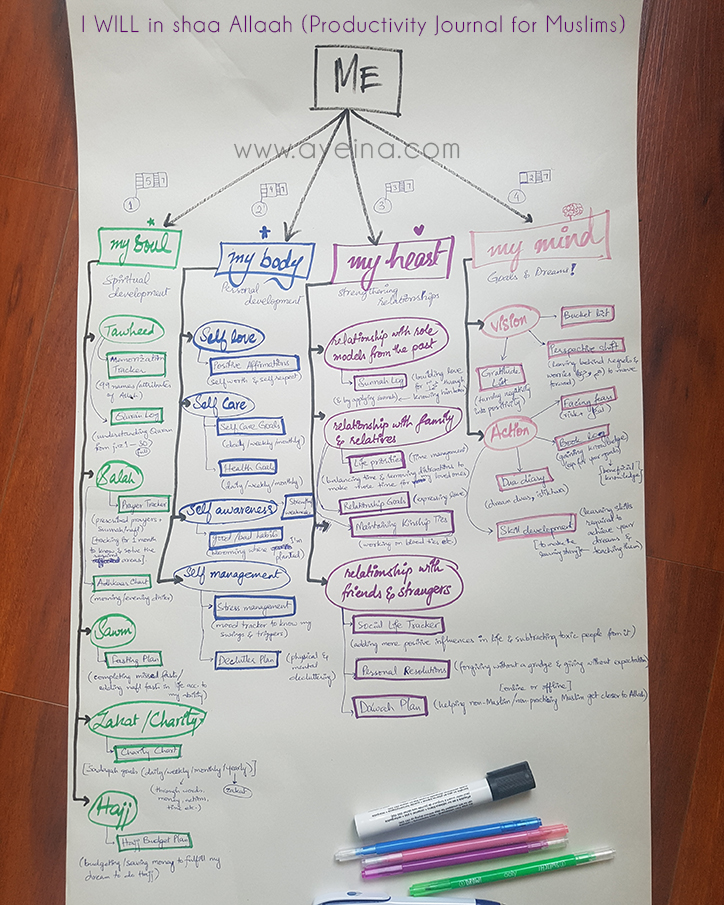 I WILL in shaa Allaah (Productivity Journal for Muslims)
ME
www.ayeina.com
5 7
1
2
3 7
3
2 7
4
my soul
Spiritual development
Tawheed
Memorization Tracker
(99 names/attributes of Allah)
Quran Log
(understanding Quran from juz 1 - 30)
Salah
Prayer Tracker
(prescribed prayers + sunnah/nafl)
(tracking for 1 month to know & solve the areas)
Adhkaar Chart
(morning/evening duas)
Sawm
Fasting Plan
(completing missed fasts/
adding nafl fasts in life acc. to my ability)
Zakat/Charity
Charity Chart
[Sadaqah goals (daily/weekly/monthly/yearly)]
(through words, money, actions, time etc.)
zakat
Hajj
Hajj Budget Plan
(budgeting/saving money to fulfill my dream to do Hajj)
my body
Personal development
Self love
Positive Affirmations
(self worth & self respect)
Self Care
Self Care Goals
(daily/weekly/monthly)
Health Goals
(daily/weekly/monthly)
Self awareness
good/bad habits
(blooming where I'm planted)
Self management
Stress management
(mood tracker to know my swings & triggers)
Declutter Plan
(physical & mental decluttering)
my heart
Strengthening relationships
relationship with role models from the past
Sunnah Log
(building love for through knowing him
(& by applying sunnah)
relationship with family & relatives
Life priorities
(time management)
(balancing time & removing distractions to make more time for loved ones)
Relationship Goals
(expressing love)
Maintaining Kinship Ties
(working on blood ties etc)
relationship with friends & strangers
Social Life Tracker
(adding more positive influences in life & subtracting toxic people from it)
Personal Resolutions
(forgiving without a grudge & giving without expectation)
[online or offline]
Dawah Plan
(helping non-Muslim/non practising Muslim get closer to Allah)
my mind
Goals & Dreams!
Vision
Bucket list
Perspective shift
(leaving behind regrets & worries to move forward)
Gratitude list
(turning negativity into positivity)
Action
Facing fears
Book log
(gaining knowledge)
[beneficial knowledge]
Dua diary
(dream duas, istikhara)
Skill development
(learning skills required to achieve your dreams &
[to make the saving through teaching them)